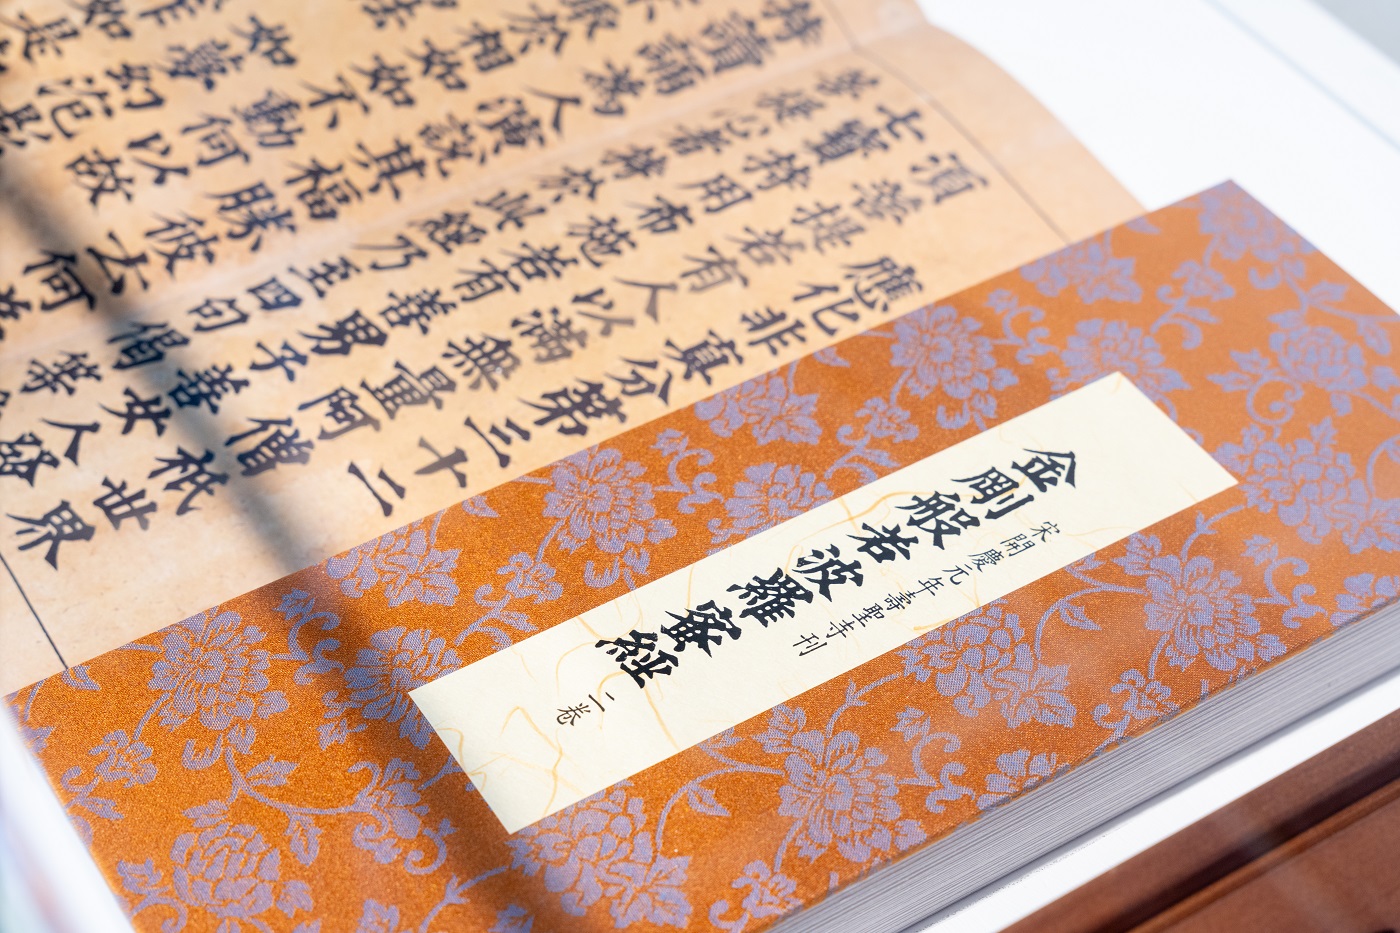 應化非真分第三十二
須菩提若有人以滿無量阿僧祇世界
七寶持用布施若有善男子善女人發
菩提心者持於此經乃至四句偈等
持讀誦為人演說其福勝彼云何
取於相如如不動何以故
法如夢幻泡影
如是
金剛般若波羅蜜經
宋開慶元年壽聖寺刊
二卷